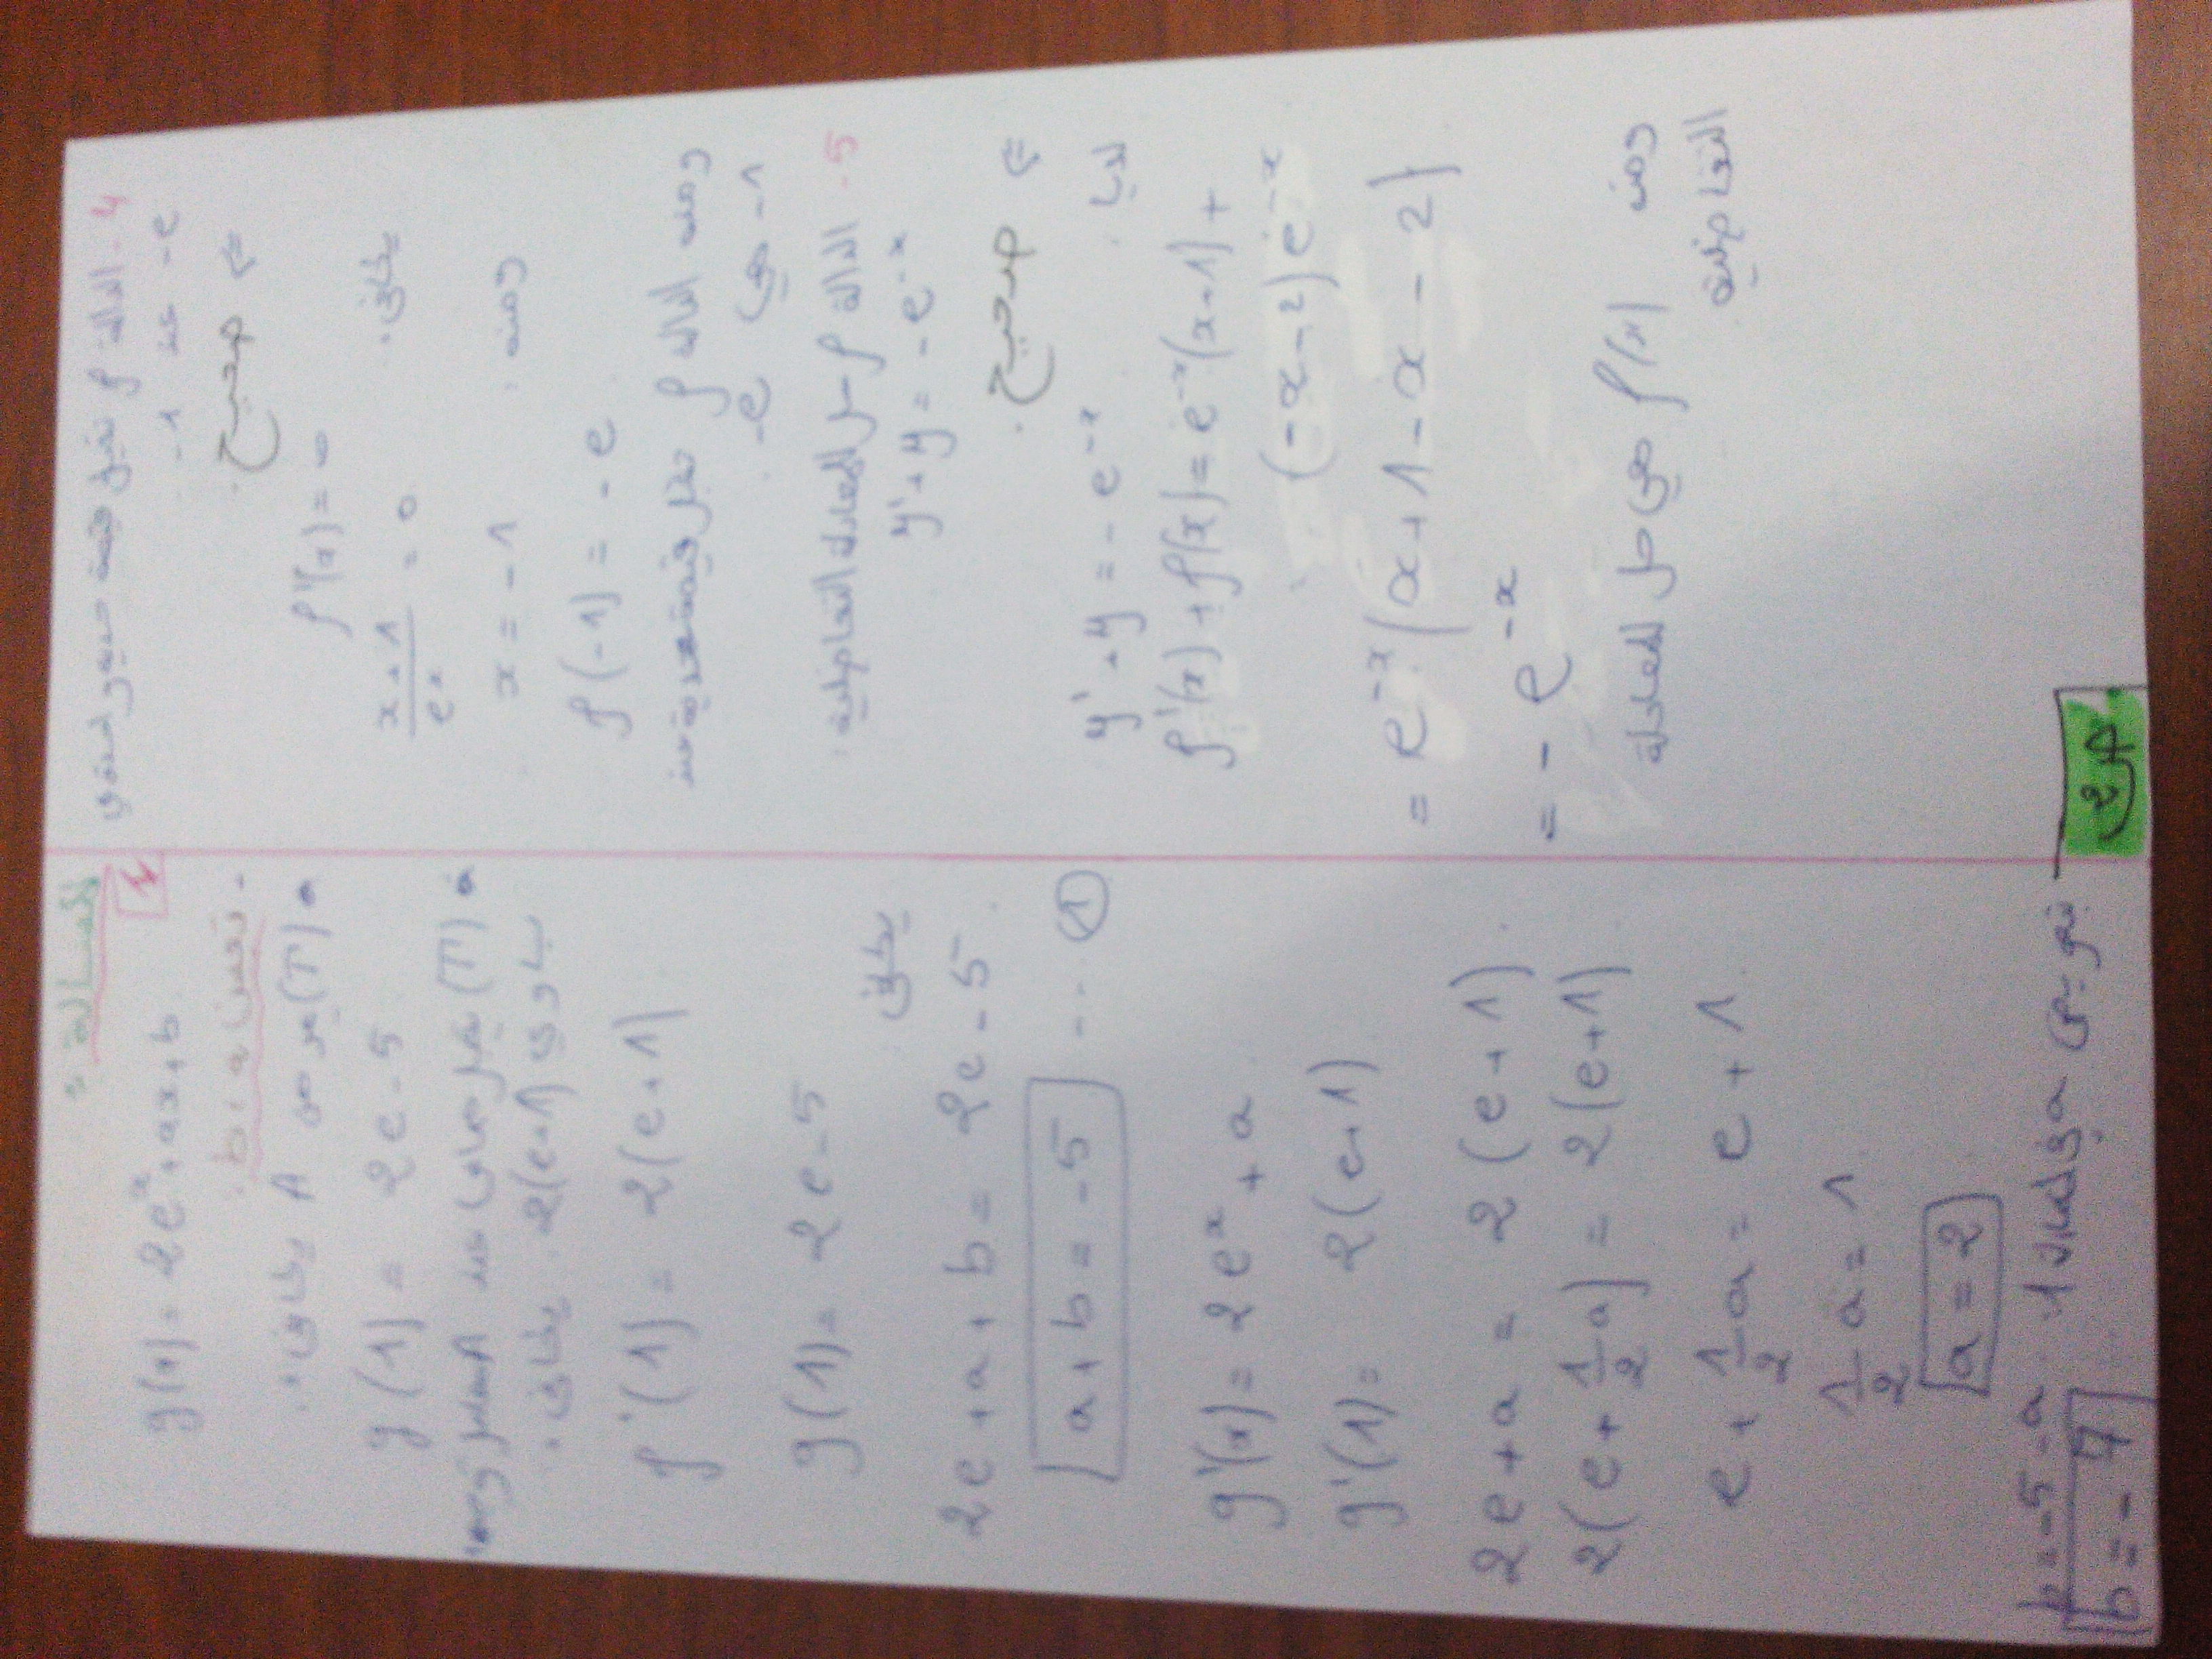 4 - الدالة f تقبل قيمة حدية صغرى
-e عند -1
⇐ صحيح.
f'(x) = 0
يكافئ.
x+1/e^x = 0
ومنه.
x = -1
f(-1) = -e
ومنه الدالة f تقبل قيمة حدية صغرى
-e هي -1
5 - الدالة f حل المعادلة التفاضلية:
y' + y = -e^-x
⇐ صحيح.
لدينا.
y' + y = -e^-x
f'(x) + f(x) = e^-x(x+1) +
(-x-2)e^-x
= e^-x(x+1-x-2)
= -e^-x
ومنه f(x) هي حل للمعادلة
التفاضلية.
المسألة:
1
g(x) = 2e^x + ax + b
- تعيين a، b.
• (T) يمر من A يكافئ:
g(1) = 2e-5
• (T) يقبل مماس عند A معامل توجيهه
يساوي 2(e+1) يكافئ.
f'(1) = 2(e+1)
g(1) = 2e-5
يكافئ
2e + a + b = 2e-5
a + b = -5 ... ①
g'(x) = 2e^x + a
g'(1) = 2(e+1)
2e + a = 2(e+1)
2(e + 1/2 a) = 2(e+1)
e + 1/2 a = e + 1
1/2 a = 1
a = 2
نعوض a في المعادلة 1. b = -5 - a
b = -7